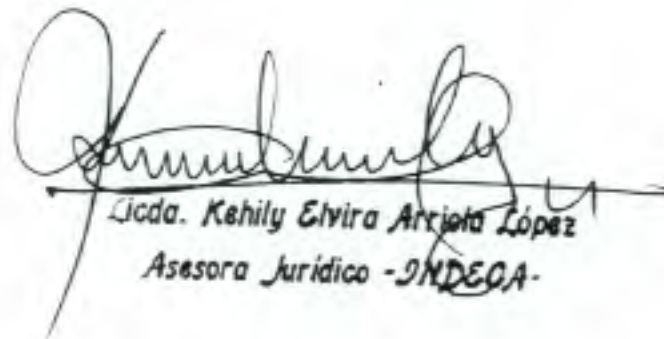 Licda. Kehily Elvira Arriola López
Asesora Jurídico -INDECA-